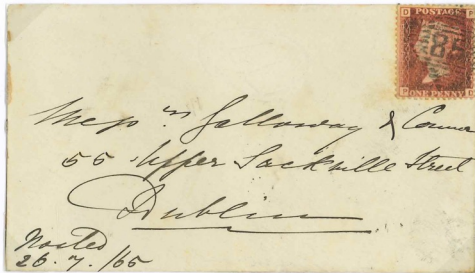 D POSTAGE P
85
P ONE PENNY D
Messrs Galloway & Connor
55 Upper Sackville Street
Dublin
Noted
26.7./65